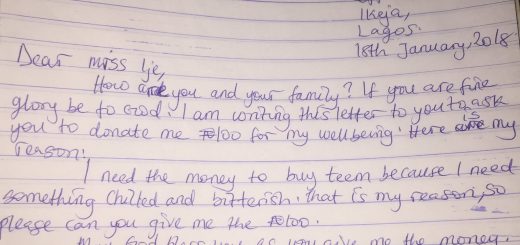 Ikeja,
Lagos.
18th January, 2018
Dear miss Ije,
How are you and your family? If you are fine
glory be to God. I am writing this letter to you to ask
you to donate me ₦100 for my wellbeing. Here is my
reason:
I need the money to buy teem because I need
something Chilled and bitterish. that is my reason, so
please can you give me the ₦100.
May God bless you as you give me the money.